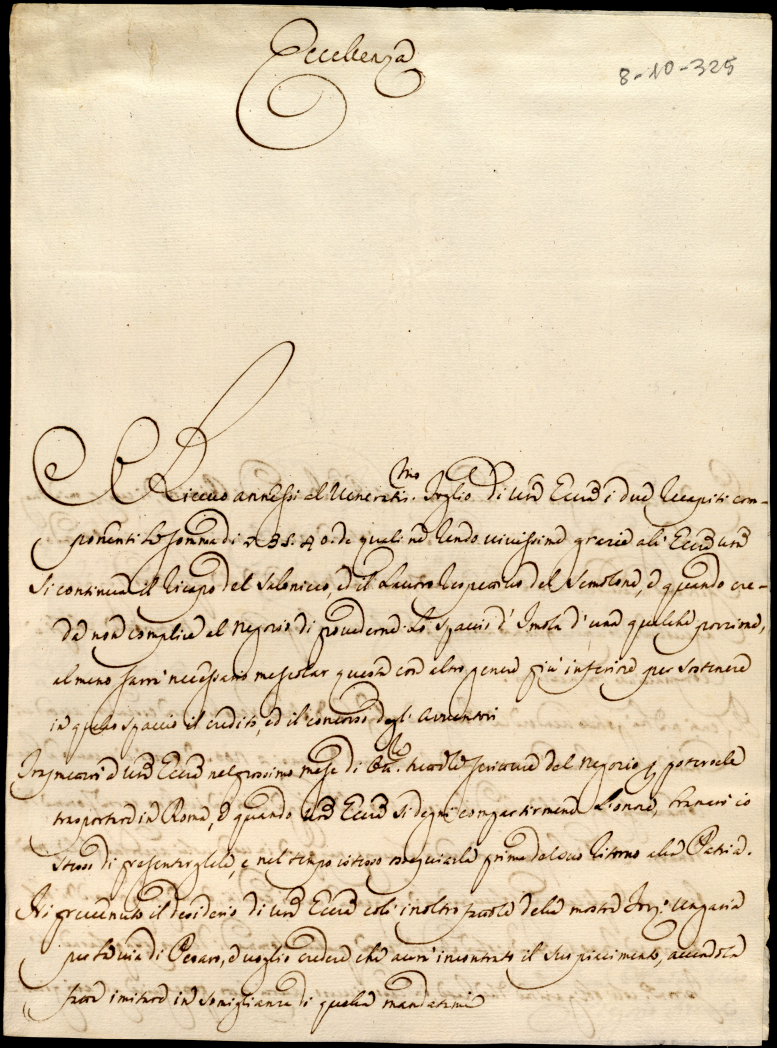 Eccellenza
8-10-325
Ricevo annessi al Veneratis.mo foglio di Vra Eccza i due Recapiti com-
ponenti la somma di 35:40: de quali ne rendo vivissime grazie all' Eccza Vra
Si continua il ricapo del Salonicco, e il lavoro respettivo del Semolone, e quando cre-
da non complice al Negozio di provederne lo spaccio d' Imola d' una qualche porzione,
almeno sarà necessario mescolar questa con altro genere più inferiore per sostenere
in quello spaccio il credito, ed il concorso degli Avventori
Trasmetterò a Vra Eccza nel prossimo mese di le scritture del Negozio p poterle
trasportare in Roma, e quando Vra Eccza si degni compartirmene l'onore, bramerei io
stesso di presentargliele, e nel tempo istesso ossequiarla prima del suo ritorno alla Patria.
Ho prevenuto il desiderio di Vra Eccza coll' inoltro della mostra Ungaria
per la via di Pesaro, e voglio credere che avrà incontrato il suo piacimento,
fatta imitare in somiglianza di quella mandatami